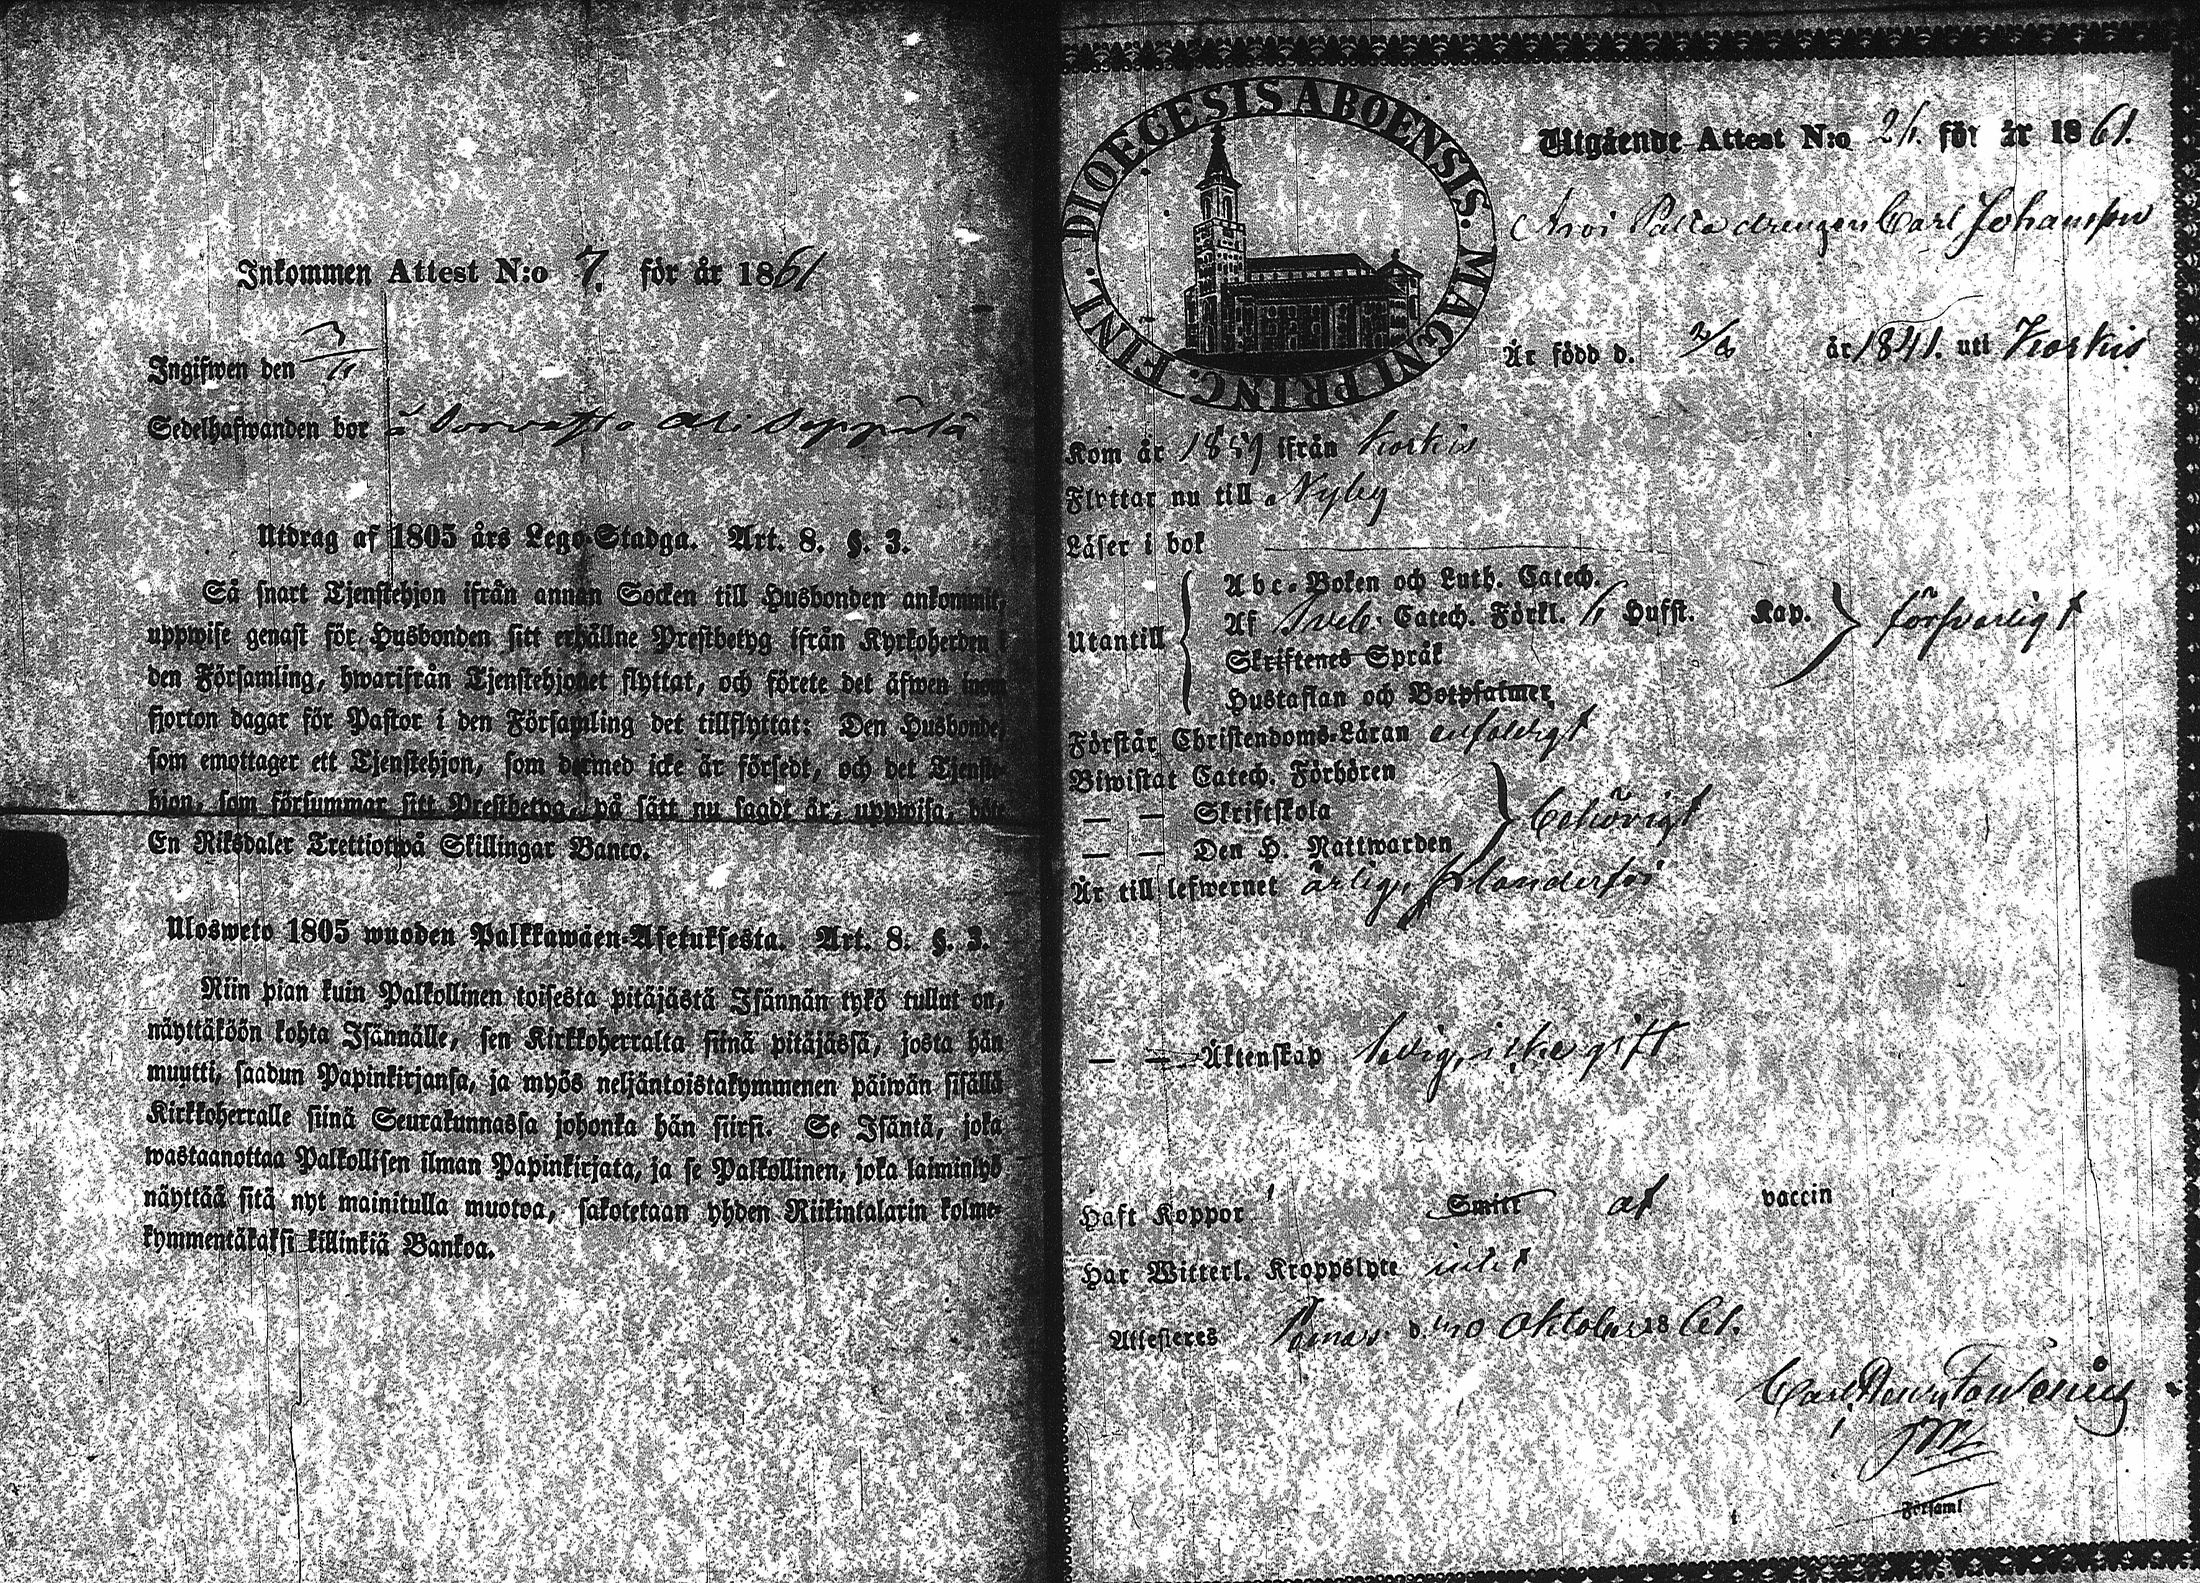 Inkommen Attest N:o 7. för år 1861
Ingifwen den
Sedelhafwanden bor å
Utdrag af 1805 års Lego-Stadga. Art. 8. §. 3.
Så snart Tjenstehjon ifrån annan Socken till Husbonden ankommit,
uppwise genast för Husbonden sitt erhållne Prestbetyg ifrån Kyrkoherden i
den Församling, hwarifrån Tjenstehjonet flyttat, och förete det äfwen inom
fjorton dagar för Pastor i den Församling det tillflyttat: Den Husbonde,
som emottager ett Tjenstehjon, som dermed icke är försedt, och det Tjenste-
hjon, som försummar sitt Prestbetyg, på sätt nu sagdt är, uppwisa, böte
En Riksdaler Trettiotwå Skillingar Banco.
Uloswето 1805 wuoden Palkkawäen-Asetuksesta. Art. 8. §. 3.
Niin pian kuin Palkollinen toisesta pitäjästä Isännän tykö tullut on,
näyttäköön kohta Isännälle, sen Kirkkoherralta siinä pitäjässä, josta hän
muutti, saadun Papinkirjansa, ja myös neljäntoistakymmenen päiwän sisällä
Kirkkoherralle siinä Seurakunnassa johonka hän siirsi. Se Isäntä, joka
wastaanottaa Palkollisen ilman Papinkirjata, ja se Palkollinen, joka laiminlyö
näyttää sitä nyt mainitulla muotoa, sakotetaan yhden Riikintalarin kolme-
kymmentäkaksi killinkiä Bankoa.
DIOECESIS ABOENSIS. MAGNI PRINC. FINL.
Utgående Attest N:o 21. för år 1861.
drengen Carl Johansson
Är född d. år 1841. uti Korkis
Kom år 1859 ifrån Korkis
Flyttar nu till Nyby
Läser i bok
Utantill
Abc-Boken och Luth. Catech.
Af Sveb. Catech. Förkl. 6 Hufst. Kap. försvarligt
Skriftenes Språk
Hustaflan och Botpsalmer.
Förstår Christendoms-Läran enfaldigt
Biwistat Catech. Förhören
— — Skriftskola behörigt
— — Den H. Nattwarden
Är till lefwernet ärlig,
— — Äktenskap ledig, icke gift
Haft Koppor Smitt af vaccin
Har Witterl. Kroppslyte intet
Attesteras Pemar d. 10 Oktober 1861.
Carl
Församl